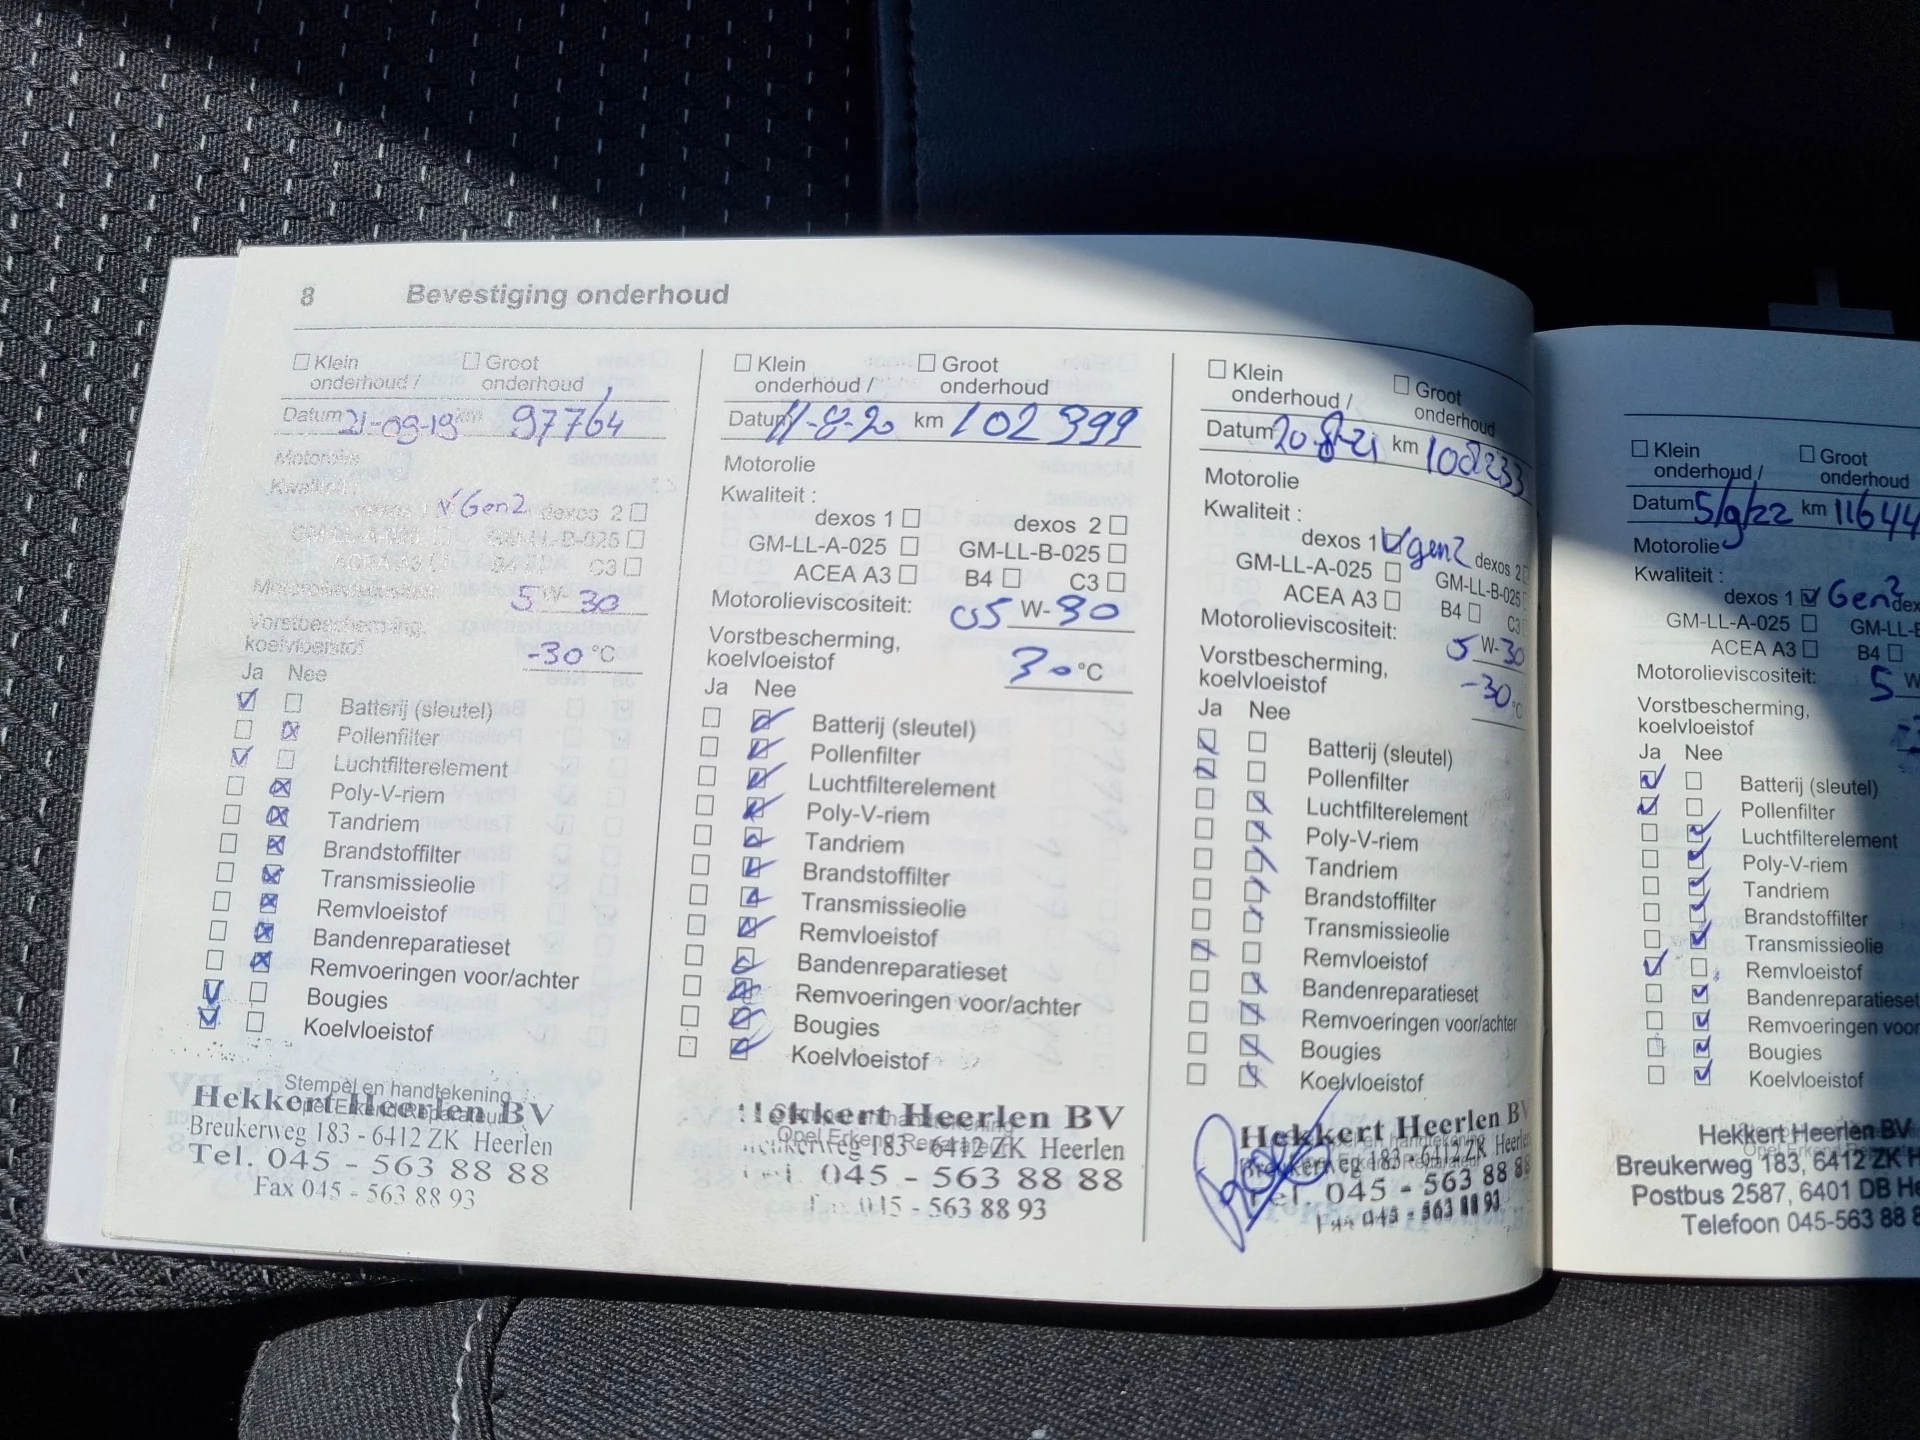 8 Bevestiging onderhoud
Klein onderhoud / Groot onderhoud
Datum 21-09-19 km 97764
Motorolie
Kwaliteit :
Gen2 dexos 2
GM-LL-A-025 GM-LL-B-025
ACEA A3 B4 C3
Motorolieviscositeit: 5 W- 30
Vorstbescherming,
koelvloeistof -30 °C
Ja Nee
Batterij (sleutel)
Pollenfilter
Luchtfilterelement
Poly-V-riem
Tandriem
Brandstoffilter
Transmissieolie
Remvloeistof
Bandenreparatieset
Remvoeringen voor/achter
Bougies
Koelvloeistof
Stempel en handtekening
Opel Erkend Reparateur
Hekkert Heerlen BV
Breukerweg 183 - 6412 ZK Heerlen
Tel. 045 - 563 88 88
Fax 045 - 563 88 93
Klein onderhoud / Groot onderhoud
Datum 11-8-20 km 102399
Motorolie
Kwaliteit :
dexos 1 dexos 2
GM-LL-A-025 GM-LL-B-025
ACEA A3 B4 C3
Motorolieviscositeit: 05 W- 30
Vorstbescherming,
koelvloeistof 30 °C
Ja Nee
Batterij (sleutel)
Pollenfilter
Luchtfilterelement
Poly-V-riem
Tandriem
Brandstoffilter
Transmissieolie
Remvloeistof
Bandenreparatieset
Remvoeringen voor/achter
Bougies
Koelvloeistof
Opel Erkend Reparateur
Hekkert Heerlen BV
Breukerweg 183 - 6412 ZK Heerlen
Tel. 045 - 563 88 88
Fax 045 - 563 88 93
Klein onderhoud / Groot onderhoud
Datum 20-8-21 km 108233
Motorolie
Kwaliteit :
dexos 1 gen2 dexos 2
GM-LL-A-025 GM-LL-B-025
ACEA A3 B4 C3
Motorolieviscositeit: 5 W- 30
Vorstbescherming,
koelvloeistof -30 °C
Ja Nee
Batterij (sleutel)
Pollenfilter
Luchtfilterelement
Poly-V-riem
Tandriem
Brandstoffilter
Transmissieolie
Remvloeistof
Bandenreparatieset
Remvoeringen voor/achter
Bougies
Koelvloeistof
Hekkert Heerlen BV
Breukerweg 183 - 6412 ZK Heerlen
Tel. 045 - 563 88 88
Fax 045 - 563 88 93
Klein onderhoud / Groot onderhoud
Datum 5/9/22 km 11644
Motorolie
Kwaliteit :
dexos 1 Gen2 dex
GM-LL-A-025 GM-LL-B
ACEA A3 B4
Motorolieviscositeit: 5 W
Vorstbescherming,
koelvloeistof
Ja Nee
Batterij (sleutel)
Pollenfilter
Luchtfilterelement
Poly-V-riem
Tandriem
Brandstoffilter
Transmissieolie
Remvloeistof
Bandenreparatieset
Remvoeringen voor
Bougies
Koelvloeistof
Hekkert Heerlen BV
Breukerweg 183, 6412 ZK H
Postbus 2587, 6401 DB He
Telefoon 045-563 88 8